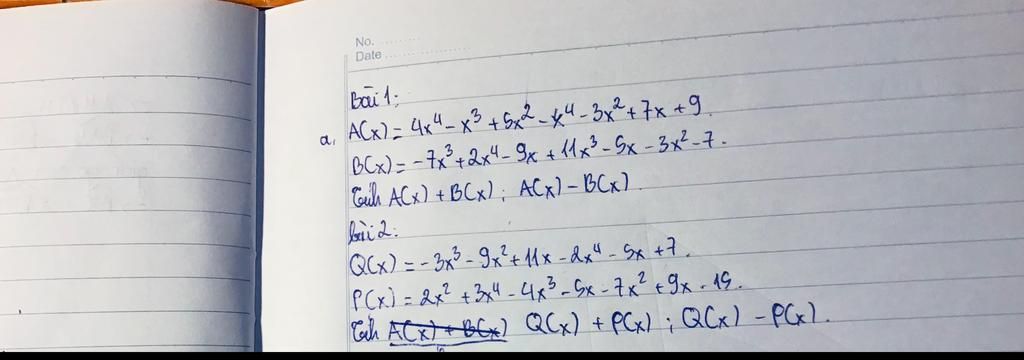 No. ........
Date ..................
Bài 1:
a, A(x) = 4x⁴ - x³ + 5x² - x⁴ - 3x² + 7x + 9.
B(x) = -7x³ + 2x⁴ - 9x + 11x³ - 5x - 3x² - 7.
Tính A(x) + B(x); A(x) - B(x).
bài 2:
Q(x) = -3x³ - 9x² + 11x - 2x⁴ - 5x + 7.
P(x) = 2x² + 3x⁴ - 4x³ - 5x - 7x² + 9x - 15.
Tính A(x) + B(x) Q(x) + P(x); Q(x) - P(x).